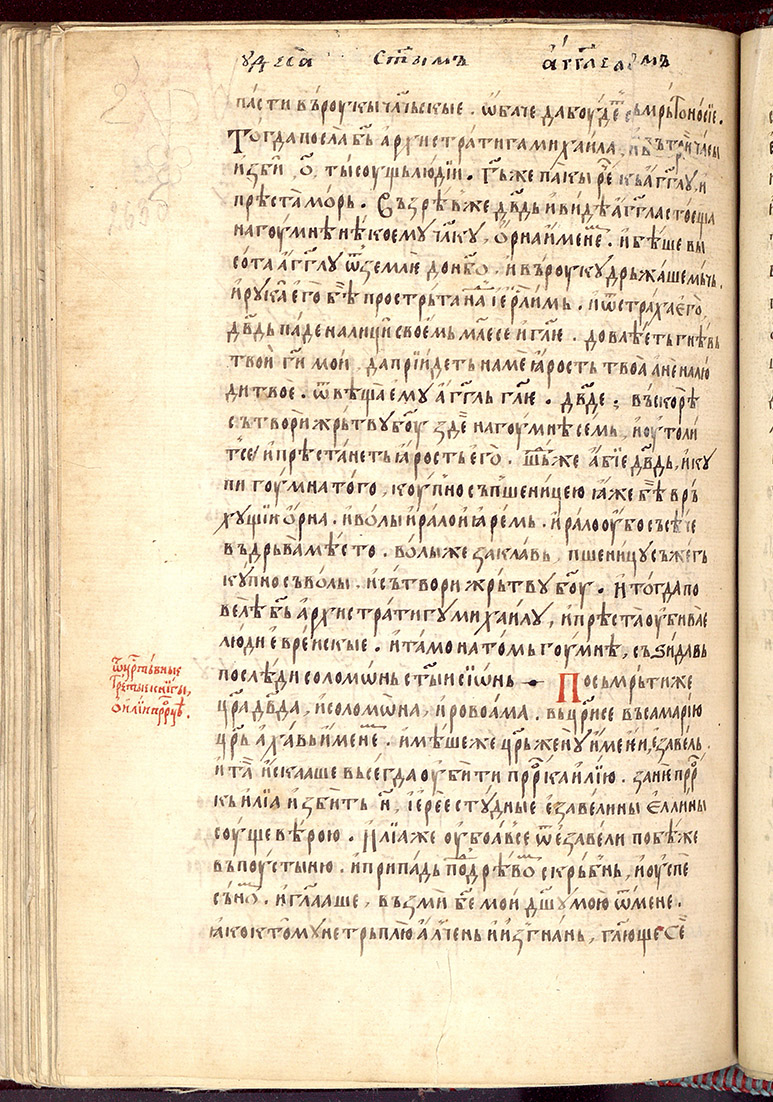 чꙋдеса ст҃ымъ а҆гг҃еломъ
пасти въ роукы чл҃чьскые . ѡ҆баче да боуде҇ съмрьтоносїе .
Тогда посла бг҃ъ а҆рхистратига михаила , и҆ въ три часы
и҆зби , о҃ , тысоущь людїи . Гь҇же пакы ре҇ къ а҆гг҃лꙋ , и҆
прѣста морь . Съзрѣв же дв҃дь и҆ видѣ а҆гг҃ла стоеща
на гоумнѣ нѣкоемꙋ чл҃кꙋ , ѻ҆рна и҆мене . и҆ бѣше вы
сота а҆гг҃лꙋ ѿ землѥ до нб҃о . и҆ въ роукꙋ дрьжаше мьчь .
и҆ рꙋка е҆го бѣ простръта на і҆ер҃лимь . и҆ ѿ страха е҆го ,
дв҃дь паде на лици своемь молесе и҆ гл҃ѥ . довлѣеть гнѣвь
твои г҃и мои , да прїидеть на мѐ ꙗ҆рость твоа а҆ не на лю
ди твоѐ . ѿвѣща е҆мꙋ а҆гг҃ль гл҃ѥ . дв҃де , въскорѣ
сътвори жрьтвꙋ б҃оу зде҇ на гоумнѣ семь , и҆ оутоли
тсе и҆ прѣстанеть ꙗ҆рость е҆го . Шь҇же а҆бїе дв҃дь , и҆ кꙋ
пи гоумна того , коупно съ пшеницею ꙗ҆же бѣ врь
хꙋщїи ѻ҆рна . и҆ волы и҆ рало и҆ ꙗ҆ремь . и҆ рало оубо съсѣче
въ дрьва мѣсто . волы же заклавь , пшеницꙋ съжегь
кꙋпно съ волы . и҆ сътвори жрьтвꙋ б҃оу . И҆ тогда по
велѣ бг҃ъ а҆рхистратигꙋ михаилꙋ , и҆ прѣста оубивае
люди е҆врейскые . и҆ тамо на томь гоумнѣ , съꙁидавь
послѣди соломонь ст҃ыи сїѡнь Посьмрьти же
цр҃а дв҃да , и҆ соломона , и҆ ровоама . въцр҃исе въ самарїю
цр҃ь а҆хавь и҆мене . и҆мѣше же цр҃ь женꙋ и҆мени , е҆завель
и҆ та̀ и҆скааше вьсегда оубити пр҃рка и҆лїю . зане пр҃р
кь и҆лїа и҆зби н҃ , і҆ерее стꙋдные е҆завелины е҆ллины
соуще вѣрою . И҆лїа же оубоавсе ѿ е҆завели побѣже
въ поустыню . и҆ припадь под рѣво скрьбнь , и҆ оуспе
съно . и҆ гл҃ааше , възми бж҃е мои дш҃ꙋ мою ѿ мене .
ꙗко к томꙋ не трьплю а҆лчень и҆ и҆згнань , гл҃юще се҇
ѿ цр҇твьные
третые книгы ,
ѻ҆ илїи пр҃рцѣ .